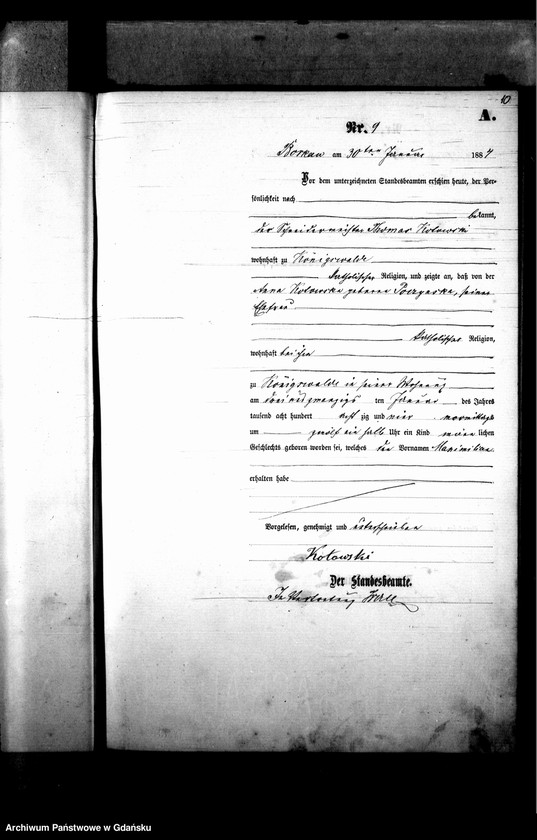 10
A.
Nr. 9
Borkau am 30ten Januar 1884
Vor dem unterzeichneten Standesbeamten erschien heute, der Per-
sönlichkeit nach
bekannt,
der Schneidermeister Thomas Kotowski
wohnhaft zu Königswalde
katholischer Religion, und zeigte an, daß von der
Anna Kotowska geborene seiner
Ehefrau
katholischer Religion,
wohnhaft bei ihm
zu Königswalde in seiner Wohnung
am ten Januar des Jahres
tausend acht hundert acht zig und vier vormittags
um zwölf ein halb Uhr ein Kind männlichen
Geschlechts geboren worden sei, welches den Vornamen Maximilian
erhalten habe
Vorgelesen, genehmigt und unterschrieben
Kotowski
Der Standesbeamte.
In Vertretung
Archiwum Państwowe w Gdańsku